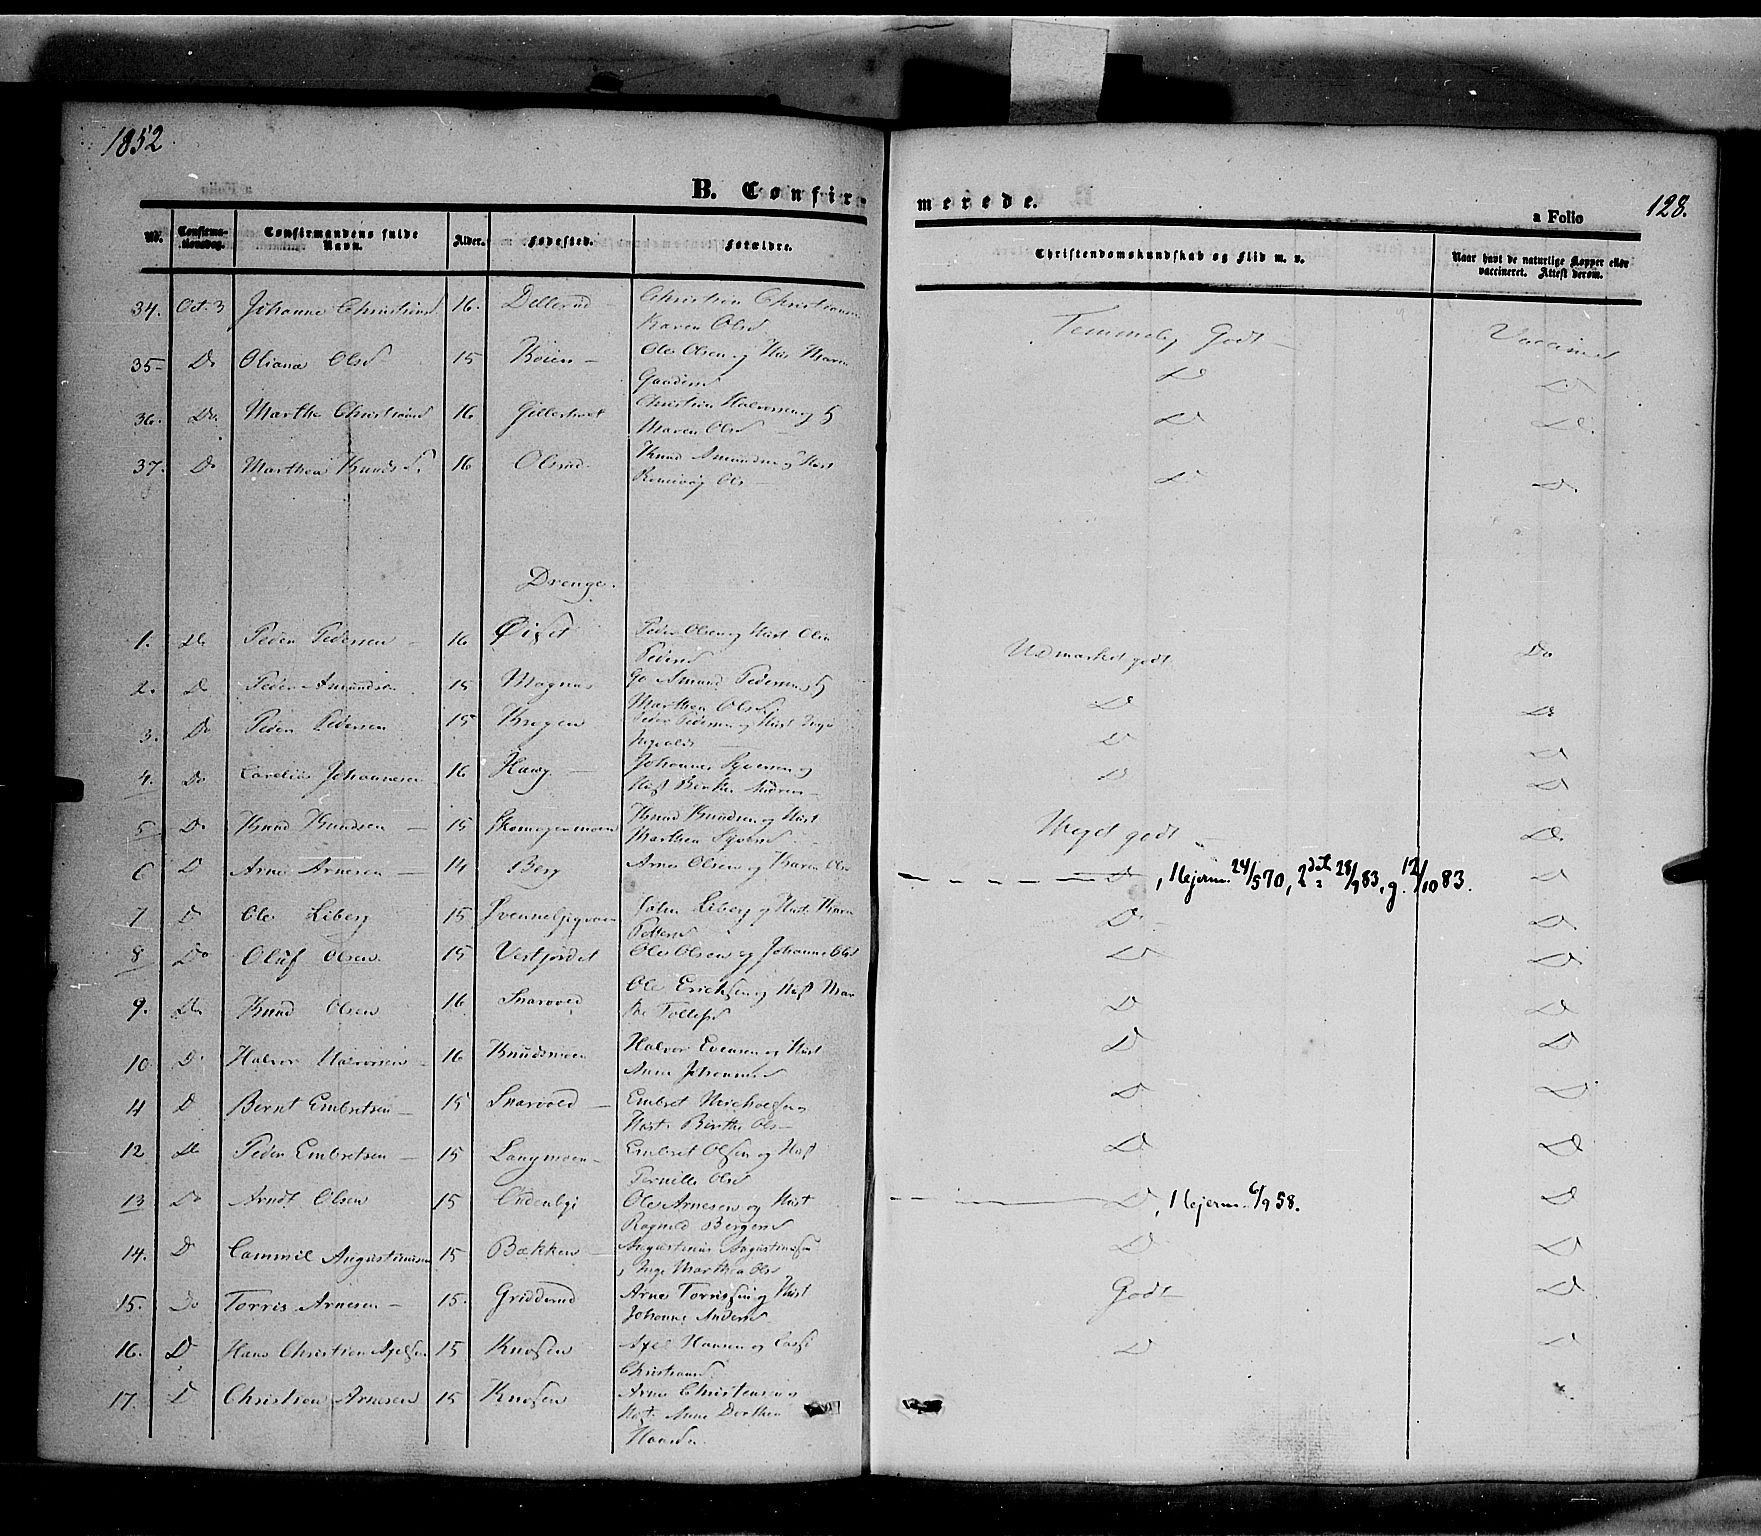 1852
128.
B. Confir-
merede.
a Folio
No.
Confirma-
tionsdag.
Confirmandens fulde
Navn.
Alder.
Fødested.
Forældre.
Christendomskundskab og Flid m. v.
Naar havt de naturlige Kopper eller
vaccineret. Attest derom.
34. Oct. 3 Johanne Christiansd 16. Dellerud Christian Christiansen
Karen Olsd Temmelig Godt Vaccineret
35 Do Oliana Olsd 15 Boien Ole Olsen og Hust Maren
Gaardersd D D
36. Do. Marthe Christiansd 16 Gillestvet Christian Halvorsen og H
Maren Olsd D D.
37. Do Marthea Knuds D. 16 Olsrud Knud Amundsen og Hust
Ronnaug Ols D D.
Drenge.
1. Do Peder Pedersen 16 Øiset Peder Olsen og Hust Olea
Pedersd Udmærket godt Do
2. D Peder Amundsen 15 Magnus Amund Pedersen og H
Marthea Olsd D Do
3. Do Peder Pedersen 15 Kragen Peder Pedersen og Hust Inge
D D
4. Do Carelius Johannesen 16 Haug Johannes Syversen og
Hust Birthe D D
5 Do Knud Knudsen 15 Skomagermoen Knud Knudsen og Hust
Marthea Syversd Meget godt D.
6 D Arne Arnesen 14 Berg Arne Olsen og Karen Ols
D, Hjerm. 24/5 70, 2det 28/9 83, g. 12/10 83. D
7 D Ole Liberg 15 Svennebyeveien John Liberg og Hust. Karen
D D
8 Do Oluf Olsen 15 Vestjordet Ole Olsen og Johanne Olsd D D
9. Do Knud Olsen 16 Snarvold Ole Erichsen og Hust Mar
the Tollefsd D D
10 D Halvor Halvorsen 16 Knudsmoen Halvor Evensen og Hust
Anne Johannesd D D
11 D Bernt Embretsen 15 Snarvold Embret Michelsen og
Hust. Birthe Ols D D
12 Do Peder Embretsen 15 Langmoen Embret Olsen og Hust
Pernille Olsd D D
13 Do Arndt Olsen 15 Oudenbyi Ole Arnesen og Hust
Ragnild Bergersd D, Hjerm. 6/9 58. D
14. D Cammil Augustinusen 15 Bækken Augustinus Augustinusen
Inge Marthea Olsd D D
15. Do Torris Arnesen 15. Gridderud Arne Torrissen og Hust
Johanne Andersd Godt D
16. D Hans Christian Axelsen 15 Knosen Axel Hansen og
Christiansd. D D
17. D Christian Arnesen 15 Knosen Arne Christensen og
Hust. Anne Dorthea